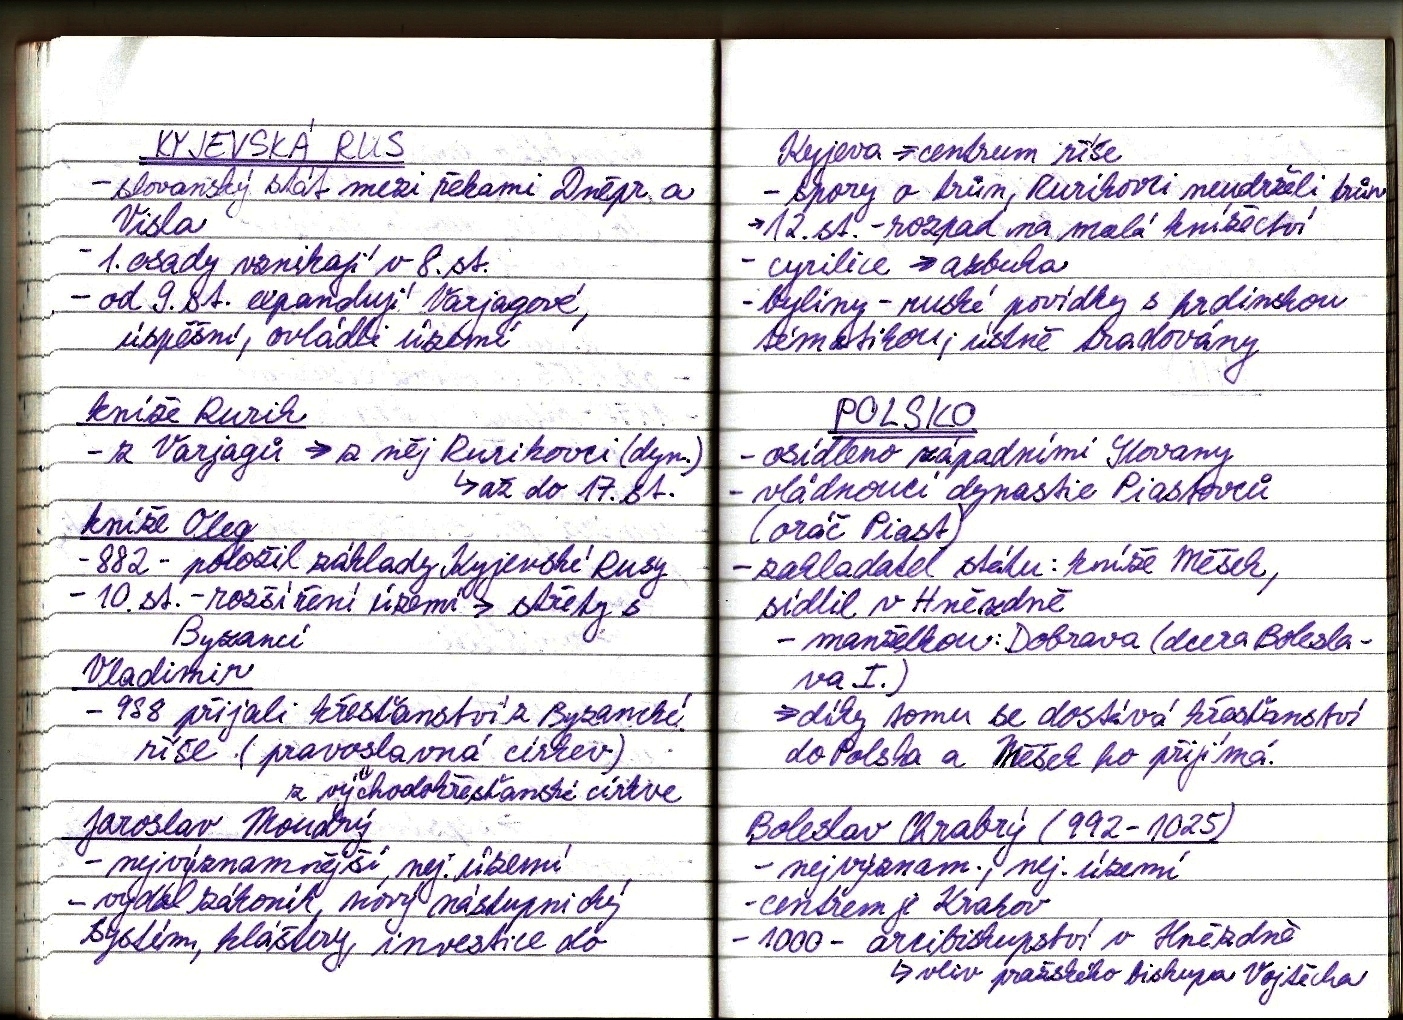 KYJEVSKÁ RUS
- slovanský stát mezi řekami Dněpr a
Visla
- 1. osady vznikají v 8. st.
- od 9. st. expandují Varjagové,
úspěšní, ovládli území
kníže Rurik
- z Varjagů → z něj Rurikovci (dyn.)
↳ až do 17. st.
kníže Oleg
- 882 - položil základy Kyjevské Rusy
- 10. st. - rozšíření území → střety s
Byzancí
Vladimir
- 988 přijali křesťanství z Byzancké
říše (pravoslavná církev)
z východokřesťanské církve
Jaroslav Moudrý
- nejvýznamnější, nej. území
- vydal zákoník, nový nástupnický
systém, kláštery, investice do
Kyjeva → centrum říše
- spory o trůn, Rurikovci neudrželi trůn
→ 12. st. - rozpad na malá knížectví
- cyrilice → azbuka
- byliny - ruské povídky s hrdinskou
tématikou, ústně tradovány
POLSKO
- osídleno západními Slovany
- vládnoucí dynastie Piastovců
(oráč Piast)
- zakladatel státu: kníže Měšek,
sídlil v Hnězdně
- manželkou: Dobrava (dcera Bolesla-
va I.)
→ díky tomu se dostává křesťanství
do Polska a Měšek ho přijímá.
Boleslav Chrabrý (992-1025)
- nejvýznam., nej. území
- centrem je Krakov
- 1000 - arcibiskupství v Hnězdně
↳ vliv pražského biskupa Vojtěcha